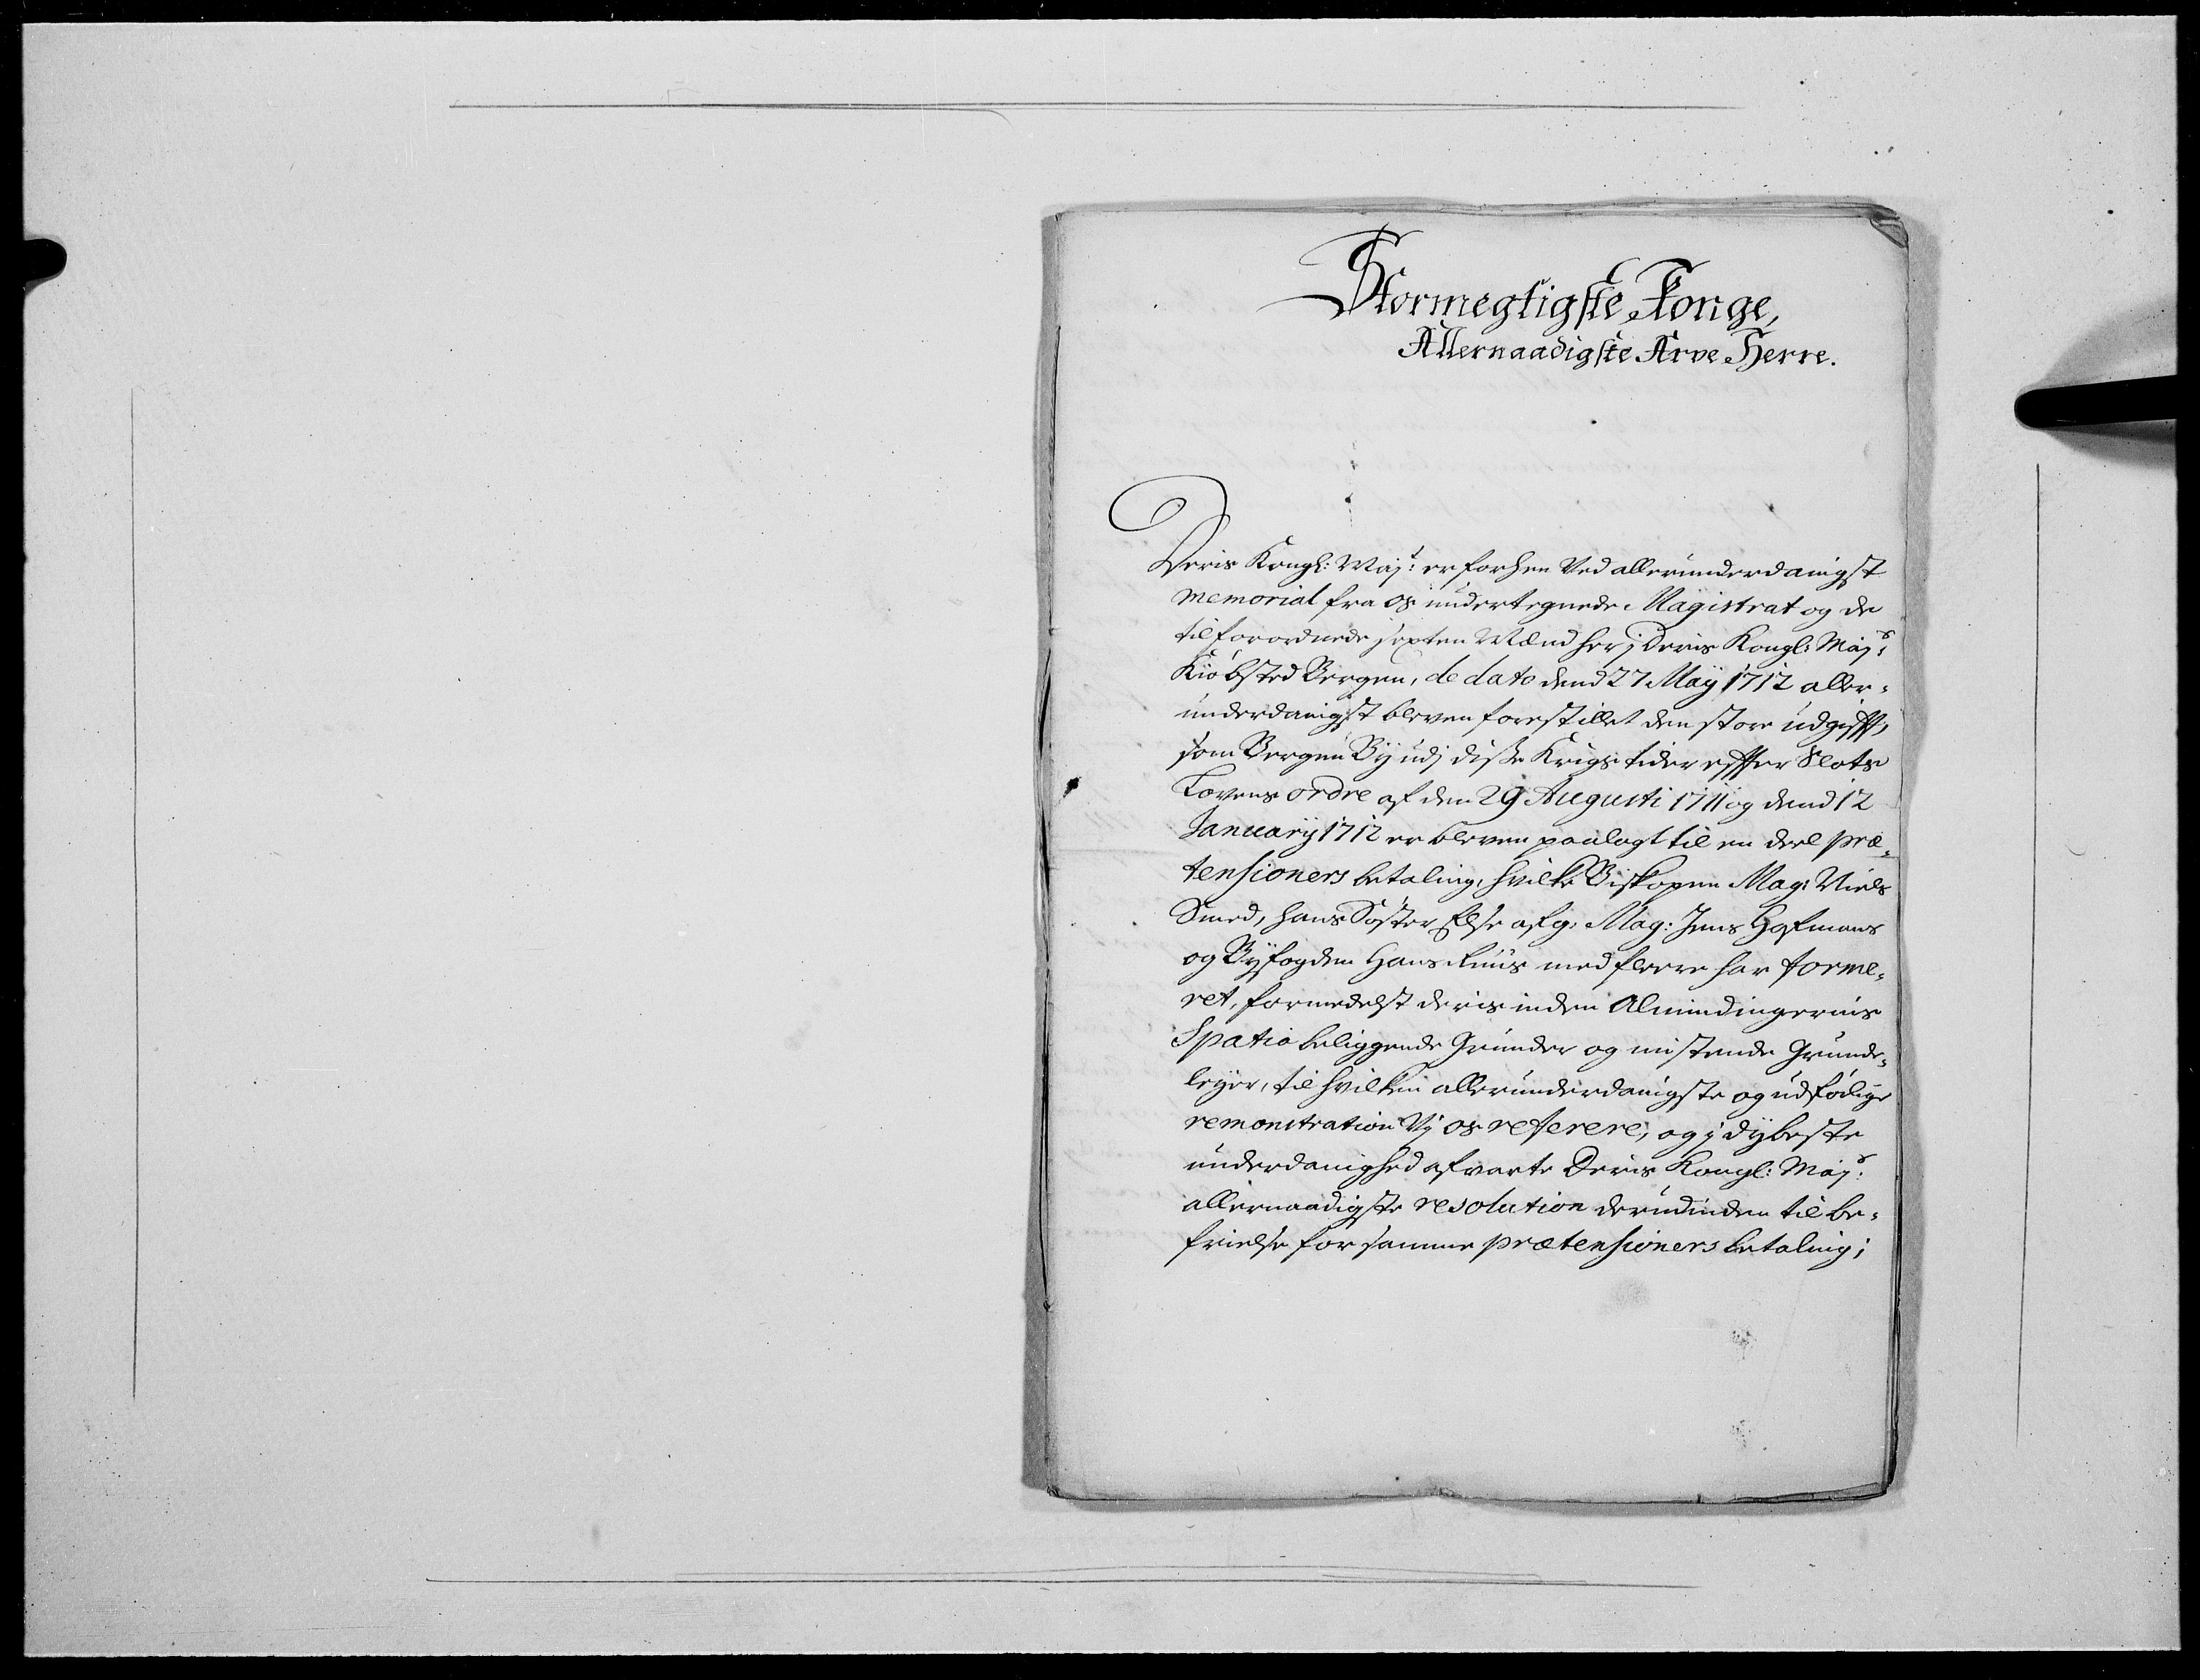 Stormegtigste Konge,
Allernaadigste Arve Herre.
Deris Kongl: Majt: er forhen Ved allerunderdanigst
memorial fra os undertegnede Magistrat og de
tilforordnede sexten Mænd her j Deris Kongl: Majs:
Kiøbsted Bergen, de dato dend 27 Maÿ 1712 aller=
underdanigst bleven forestillet den store udgifft,
som Bergen Bÿ udj diße Krigs tider effter Slots
Lovens ordre af den 29 Augusti 1711 og dend 12
Januarÿ 1712 er bleven paalagt til en deel præ=
tensioners betaling, hvilke Biskopen Mag: Niels
Smed, hans Søster Else afg: Mag: Jens Hofmans
og Bÿfogden Hans Ruus med fleere har forme=
ret, formedelst deris inden Almindingernis
Spatio beliggende Grunder og mistende Grunde=
leÿer, til hvilken allerunderdanigste og udførlige
remonstration Vj os referere, og j dÿbeste
underdanighed afvarte Deris Kongl: Majs:
allernaadigste resolution derudinden til be=
frielse for samme prætensioners betaling;